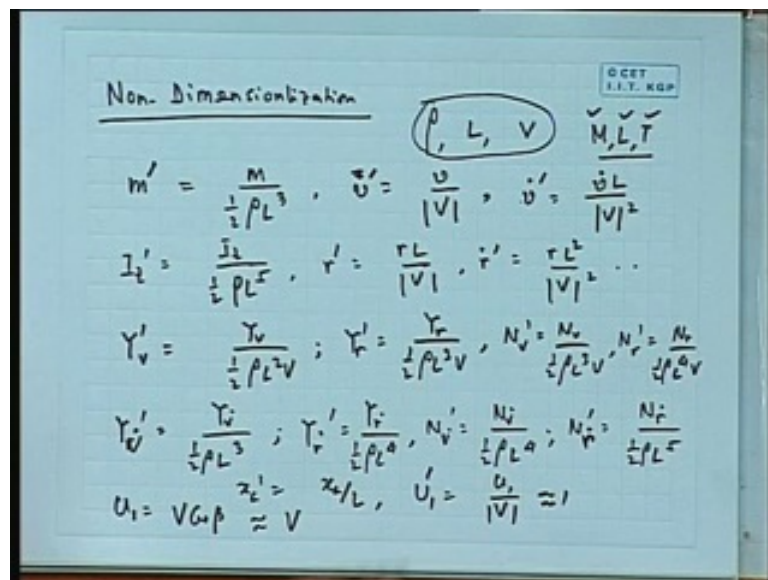 © CET
I.I.T. KGP
Non-Dimensionlization
ρ, L, V M, L, T
m' = m / ½ρL³, v' = v / |V|, v̇' = v̇L / |V|²
I_z' = I_z / ½ρL⁵, r' = rL / |V|, ṙ' = rL² / |V|² ..
Y_v' = Y_v / ½ρL²V ; Y_r' = Y_r / ½ρL³V, N_v' = N_v / ½ρL³V, N_r' = N_r / ½ρL⁴V
Y_v̇' = Y_v̇ / ½ρL³ ; Y_ṙ' = Y_ṙ / ½ρL⁴, N_v̇' = N_v̇ / ½ρL⁴ ; N_ṙ' = N_ṙ / ½ρL⁵
u₁ = V cos β ≈ V x_G' = x_G/L, u₁' = u₁ / |V| ≈ 1